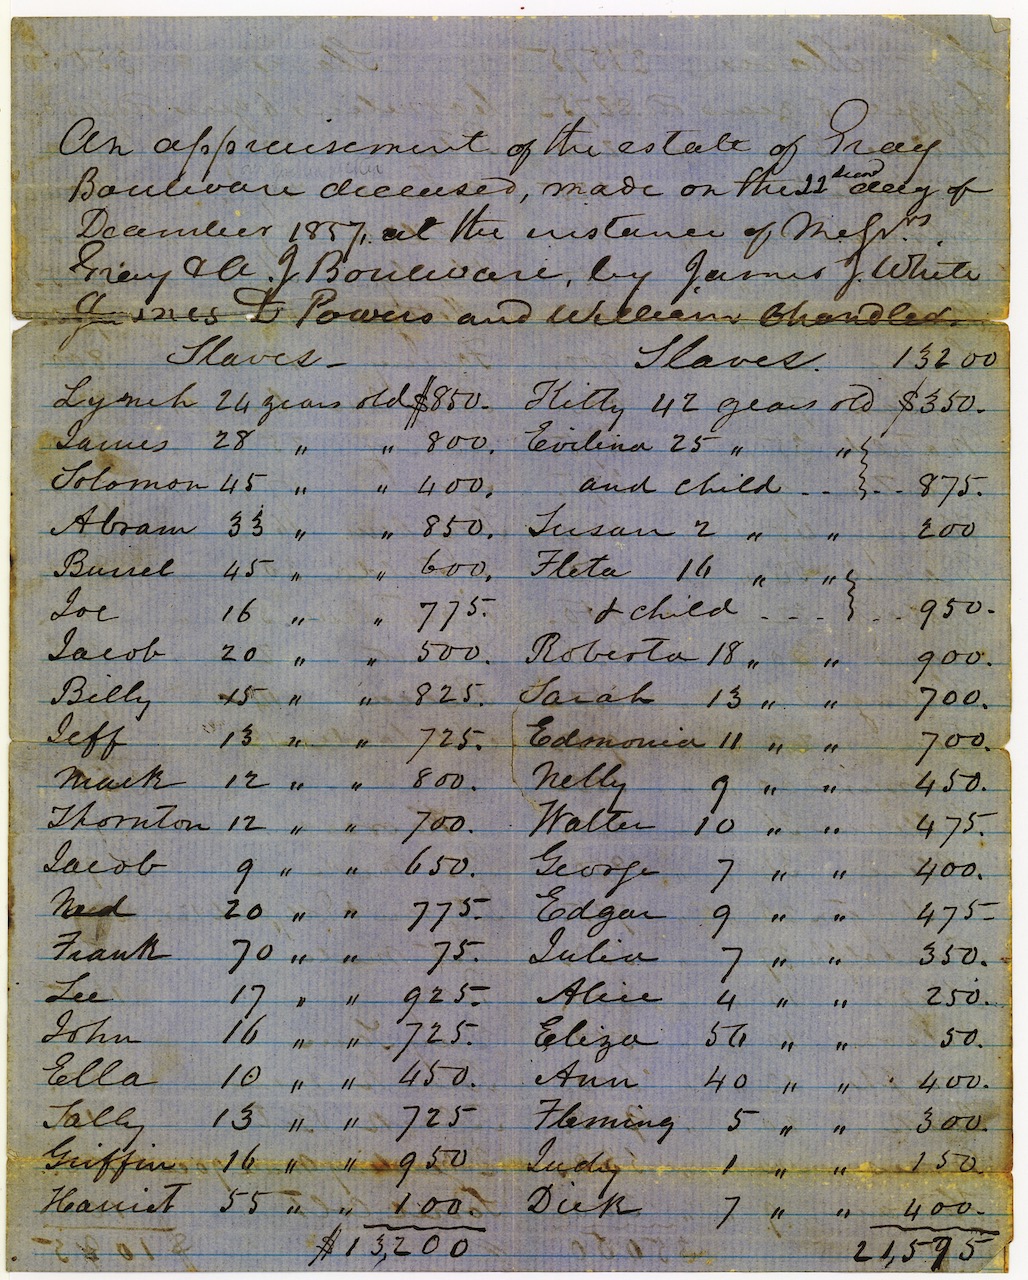 An appraisement of the estate of Gray
Bouleware deceased, made on the 22 second day of
December 1857, at the instance of Messrs.
Gray & A. J Bouleware, by James J. White
James D Powers and William Chandler.
Slaves - Slaves. 13200
Lynch 24 years old $850. Kitty 42 years old $350.
James 28 " " 800. Evilina 25 " "
Solomon 45 " " 400. and child - - - - 875.
Abram 33 " " 850. Susan 2 " " 200
Burrel 45 " " 600. Fleta 16 " "
Joe 16 " " 775. & child - - - - 950.
Jacob 20 " " 500. Roberta 18 " " 900.
Billy 15 " " 825. Sarah 13 " " 700.
Jeff 13 " " 725. Edmonia 11 " " 700.
Mack 12 " " 800. Nelly 9 " " 450.
Thornton 12 " " 700. Walter 10 " " 475.
Jacob 9 " " 650. George 7 " " 400.
Ned 20 " " 775. Edgar 9 " " 475
Frank 70 " " 75. Julia 7 " " 350.
Lee 17 " " 925. Alice 4 " " 250.
John 16 " " 725. Eliza 56 " " 50.
Ella 10 " " 450. Ann 40 " " 400.
Sally 13 " " 725 Fleming 5 " " 300.
Griffin 16 " " 950 Judy 1 " " 150
Harriet 55 " " 100. Dick 7 " " 400.
$13,200 21,595